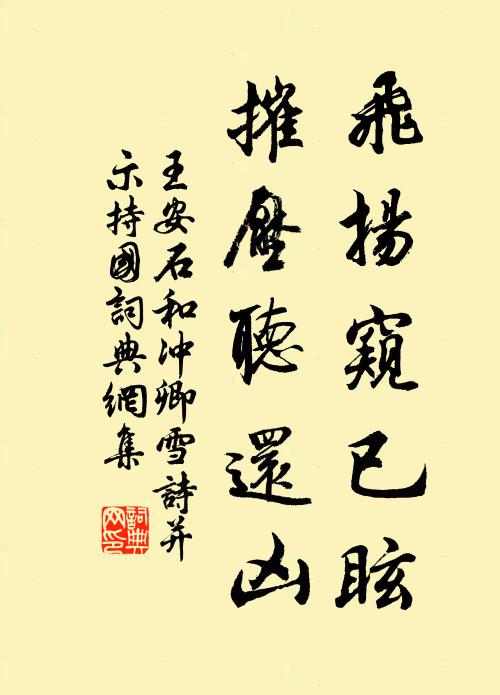 飛揚窺已眩
摧壓聽還凶
王安石和沖卿雪詩并
示持國詞典網集
詞典
网印